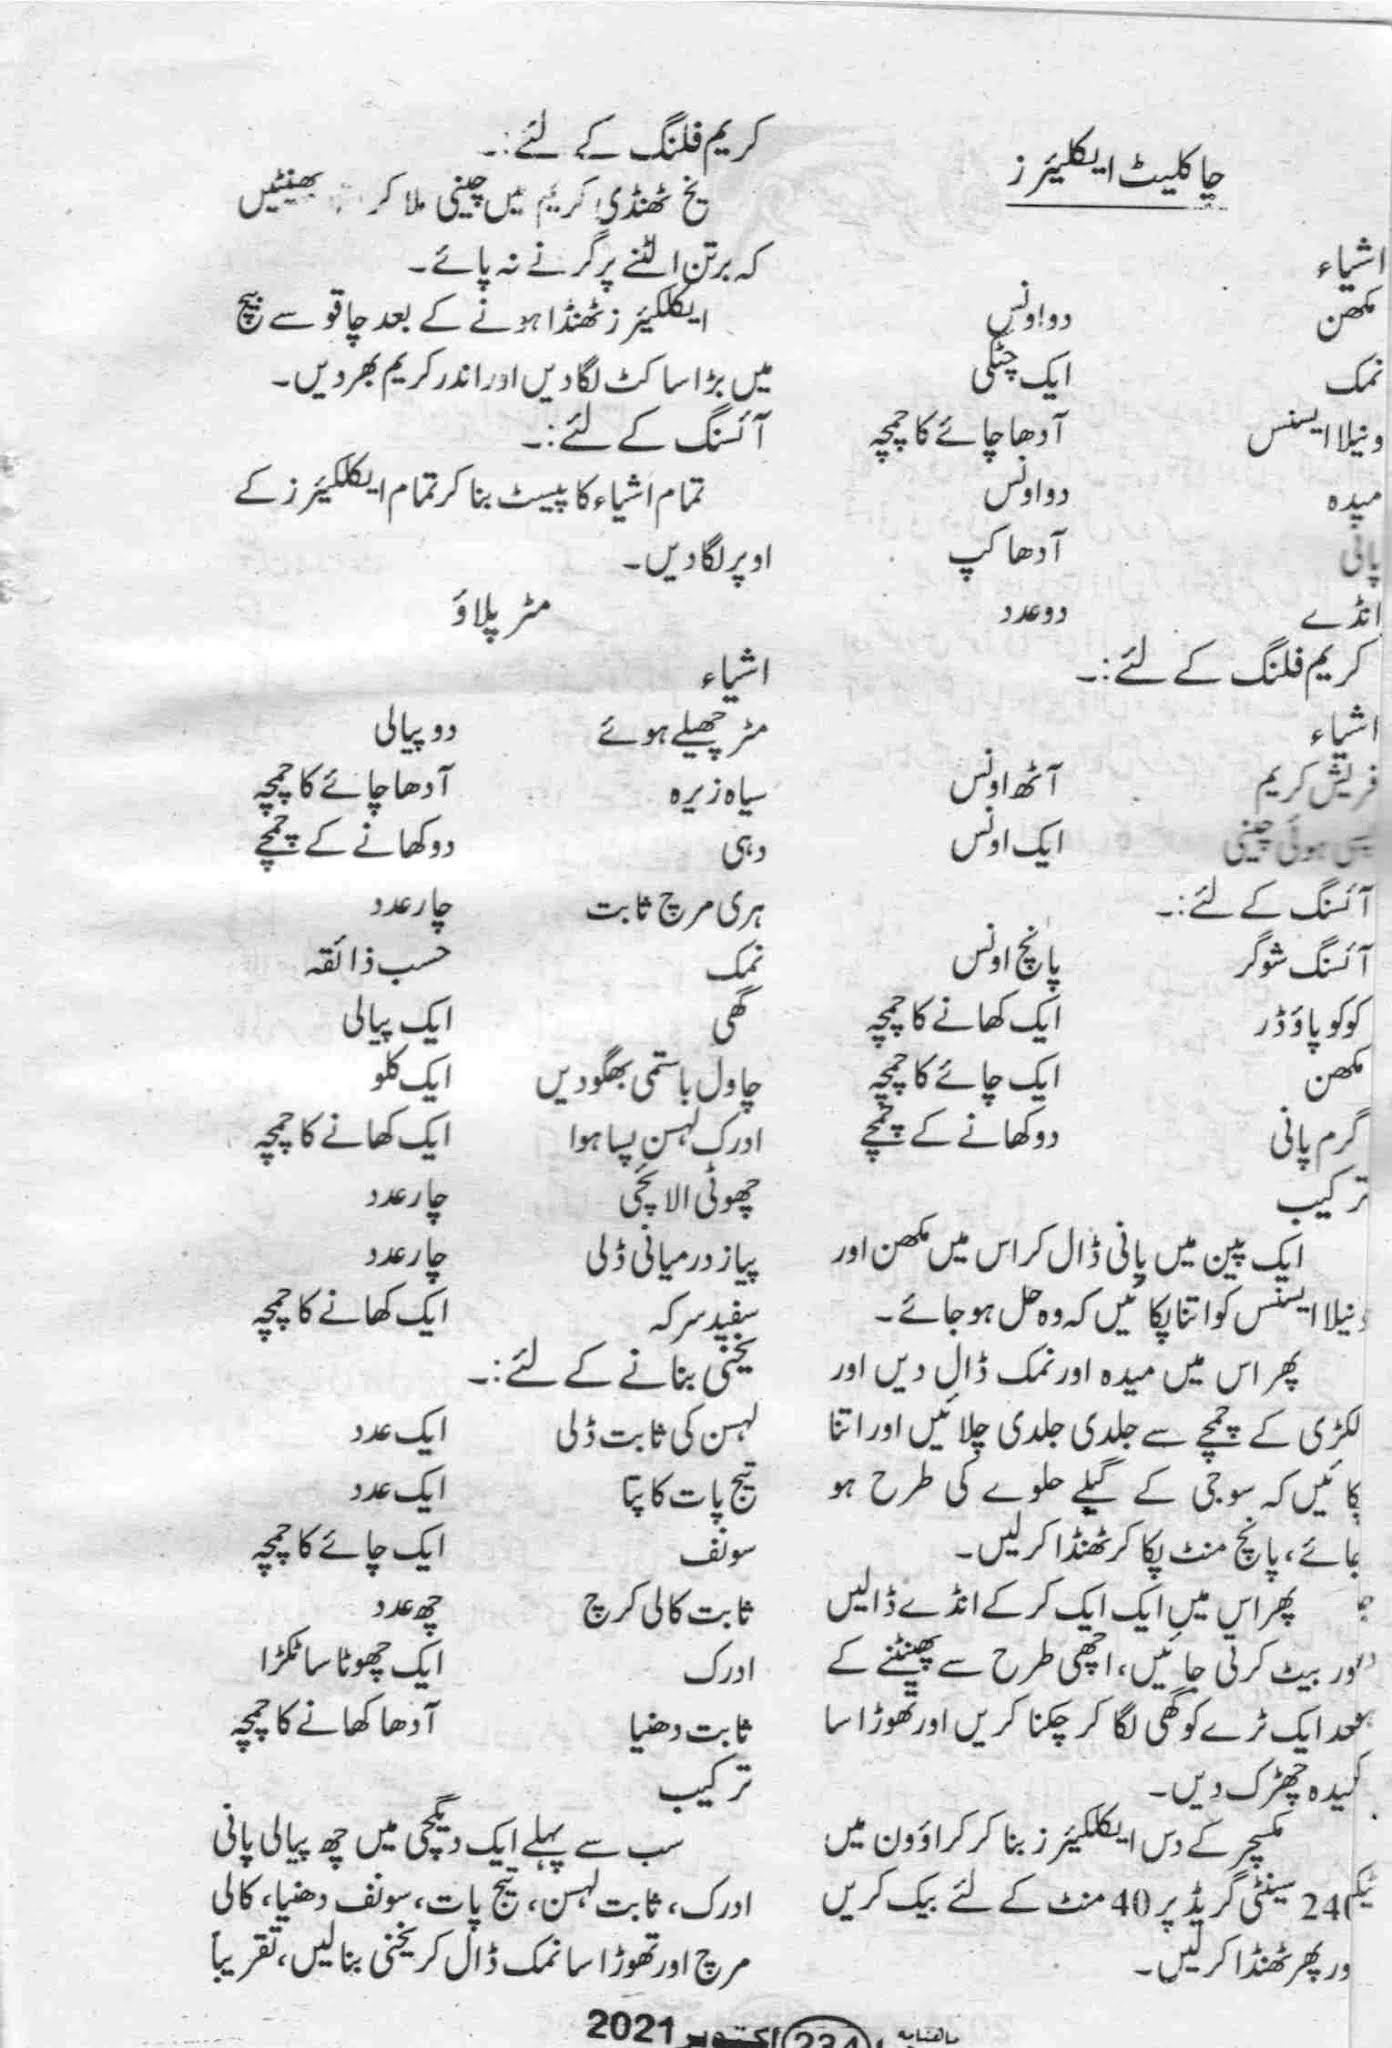 چاکلیٹ ایکلیئرز
اشیاء
مکھن دو اونس
نمک ایک چٹکی
ونیلا ایسنس آدھا چائے کا چمچہ
میدہ دو اونس
پانی آدھا کپ
انڈے دو عدد
کریم فلنگ کے لئے:۔
اشیاء
فریش کریم آٹھ اونس
پسی ہوئی چینی ایک اونس
آئسنگ کے لئے:۔
آئسنگ شوگر پانچ اونس
کوکو پاؤڈر ایک کھانے کا چمچہ
مکھن ایک چائے کا چمچہ
گرم پانی دو کھانے کے چمچے
ترکیب
ایک پین میں پانی ڈال کر اس میں مکھن اور
ونیلا ایسنس کو اتنا پکائیں کہ وہ حل ہو جائے۔
پھر اس میں میدہ اور نمک ڈال دیں اور
لکڑی کے چمچے سے جلدی جلدی چلائیں اور اتنا
پکائیں کہ سوجی کے گیلے حلوے کی طرح ہو
جائے، پانچ منٹ پکا کر ٹھنڈا کر لیں۔
پھر اس میں ایک ایک کر کے انڈے ڈالیں
اور بیٹ کرتی جائیں، اچھی طرح سے پھینٹنے کے
ایک ٹرے کو گھی لگا کر چکنا کریں اور تھوڑا سا
چھڑک دیں۔
مکسچر کے دس ایکلکیئرز بنا کر کر اوون میں
240 سینٹی گریڈ پر 40 منٹ کے لئے بیک کریں
اور پھر ٹھنڈا کر لیں۔
کریم فلنگ کے لئے:۔
یخ ٹھنڈی کریم میں چینی ملا کر پھینٹیں
کہ برتن الٹنے پر گرنے نہ پائے۔
ایکلکیئرز ٹھنڈا ہونے کے بعد چاقو سے بیچ
میں بڑا سا کٹ لگا دیں اور اندر کریم بھر دیں۔
آئسنگ کے لئے:۔
تمام اشیاء کا پیسٹ بنا کر تمام ایکلکیئرز کے
اوپر لگا دیں۔
مٹر پلاؤ
اشیاء
مٹر چھیلے ہوئے دو پیالی
سیاہ زیرہ آدھا چائے کا چمچہ
دہی دو کھانے کے چمچے
ہری مرچ ثابت چار عدد
نمک حسب ذائقہ
گھی ایک پیالی
چاول باستمی بھگو دیں ایک کلو
ادرک لہسن پسا ہوا ایک کھانے کا چمچہ
چھوٹی الائچی چار عدد
پیاز درمیانی ڈلی چار عدد
سفید سرکہ ایک کھانے کا چمچہ
یخنی بنانے کے لئے:۔
لہسن کی ثابت ڈلی ایک عدد
تیج پات کا پتا ایک عدد
سونف ایک چائے کا چمچہ
ثابت کالی کرچ چھ عدد
ادرک ایک چھوٹا سا ٹکڑا
ثابت دھنیا آدھا کھانے کا چمچہ
ترکیب
سب سے پہلے ایک دیگچی میں چھ پیالی پانی
ادرک، ثابت لہسن، تیج پات، سونف دھنیا، کالی
مرچ اور تھوڑا سا نمک ڈال کر یخنی بنا لیں، تقریباً
ماہنامہ 234 اکتوبر 2021